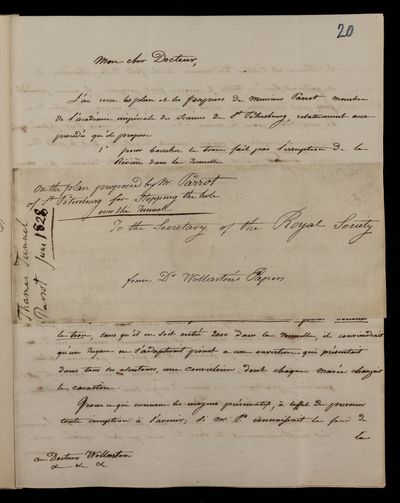 20
Mon cher Docteur,
J'ai recu le plan et les papiers de Monsieur Parrot membre
de l'academie impériale des Sciences de St Pétersbourg, relativement aux
procédés qu'il propose
1° pour boucher le trou fait par l'irruption de la
Rivière dans le Tunnelle
On the plan proposed by Mr. Parrot
of St Petersburg for Stopping the hole
over the Tunnel
To the Secretary of the Royal Society
from Dr Wollastons Papers
Thames Tunnel
Parrot June 1828
le trou, sans qu'il en soit entré dans la Tunnelle, il conviendrait
qu'un tuyau ne s'adapterait point a une ouverture qui présentait
dans tous ses alentours, une convulsion dont chaque marée changeait
le caractère.
Quant a ce qui concerne les moyens préservatifs, à l'effet de prevenir
toute irruption à l'avenir, si Mr P. connaissait le fond de
la
au Docteur Wollaston